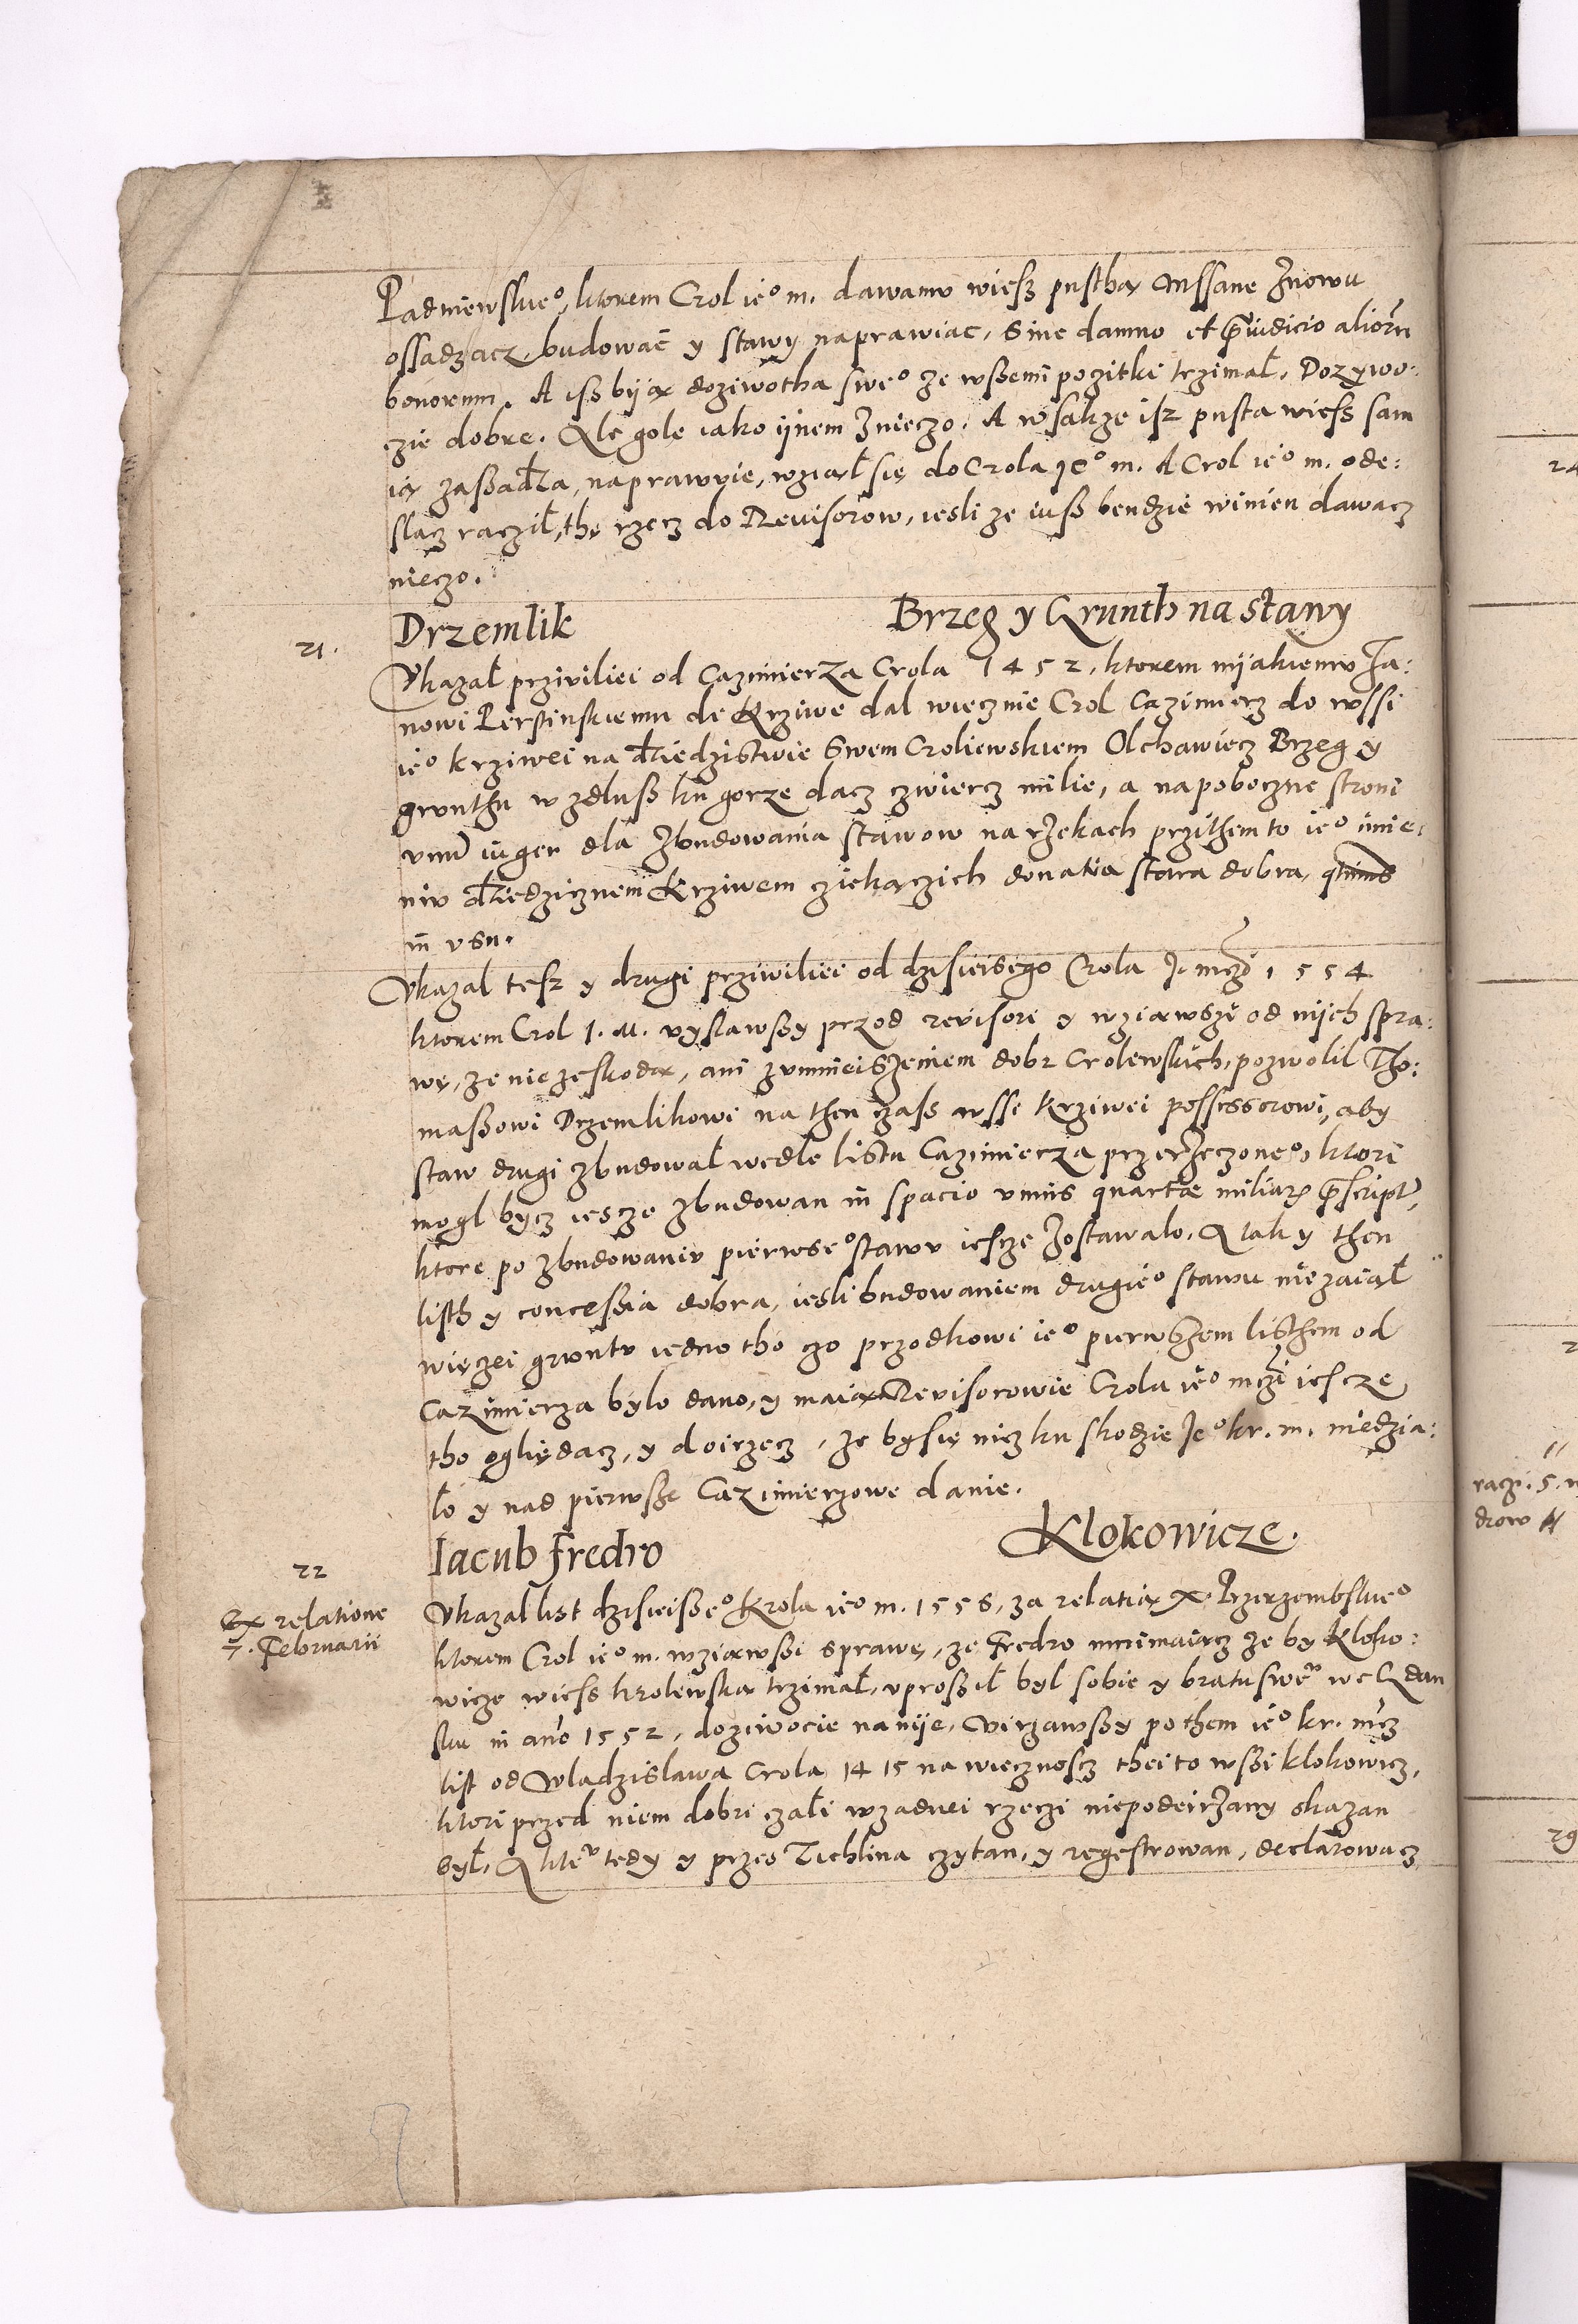 Padniewskie°, ktorem Crol ie° m. dawamv wiesz pusthą Mssane znowu
ossadzacz, budowac y stawy naprawiac, Sine damno et p̃iudicio alior̃u
bonorum. A isß byią doziwotha swe° ze wßemi pozitki trzimal. Dozywo:
czie dobre. Ale gole iako ijnem znieczo. A wsakze isz pusta wiess sam
ią zaßadla, naprawvie, wziąl się do Crola ie° m. A Crol ie° m. ode:
slacz raczil, thę rzecz do Revisorow, iesli ze iuß bendzie winien dawacz
nieczo.
Drzemlik Brzeg y Grunth na stawy
21.
Vkazal priviliei od Cazimierza Crola 1452, ktorem nijakiemv Ja:
nowi Perstinskiemu de Krziwe dal wiecznie Crol Cazimierz do wssi
ie° krziwei na dziedzistwie Swem Croliewskiem Olchawiecz Brzeg y
grvnthu wzdluß ku gorze dacz czwiercz milie, a na poboczne stroni
vnũ iuger dla Zbudowania stawow na rzekach przithem to ie° imie:
niv dziedzicznem Krziwem cziekączich donatia stara dobra,
in vsu.
Vkazal tesz y drugi priwiliei od dzisieisego Crola J. mczi 1554
ktorem Crol J. M. vyslawßy przod revisori y wziąwszi od nijch spra:
wę, ze nie ze skodą, ani zvmnieiSzeniem dobr Crolewskich, pozwolil Tho:
maßowi Drzemlikowi na then czass wssi Krziwei possessorowi, aby
staw drugi zbudowal wedle listu Cazimierza przerzeczone°, ktori
mogl bycz iescze zbudowan in spacio vnius quartae miliar̃ p̃script,
ktore po zbudowaniv pierwse° stawv iescze zostawalo. A tak y then
listh y concessia dobra, iesli budowaniem drugie° stawu nie zaiąl
więczei grvntv iedno tho czo przodkowi ie° pierwSzem listhem od
Cazimierza bylo dano, y maią Revisorowie Crola ie° mczi iescze
tho oględacz, y doirzecz, ze by się nicz ku skodzie Je° kr. m. niedzia:
lo y nad pierwsze Cazimierzowe danie.
Jacub Fredro Klokowicze.
22
Ex relatione
7. Februarii
Vkazal list dzisieiße° Krola ie° m. 1556, za relatią X. Przerzembskie°
ktorem Crol ie° m. wziąwßi sprawę, ze Fredro mnimaiącz ze by Kloko:
wicze wiess krolewską trzimal, vproßil byl sobie y bratu swe° we Gdan
sku in año 1552, doziwocie na nije, Virzawßy pothem ie° kr. mcz
list od Wladzislawa Crola 1415 na wiecznoscz thei to wßi klokowicz,
ktori przed niem dobri czali wzadnei rzeczi niepodeirzany okazan
byl, A tedy y przes Tichlina czytan, y regestrowan, declarowacz
24
raczi. 5.
drow
29